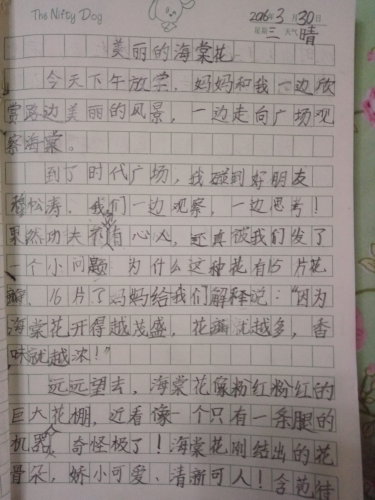 The Nifty Dog
2016年3月30日
星期三 天气晴
美丽的海棠花
今天下午放学，妈妈和我一边欣
赏路边美丽的风景，一边走向广场观
察海棠。
到了时代广场，我碰到好朋友
穆松涛，我们一边观察，一边思考！
果然功夫不有心人，还真被我们发了
一个小问题 为什么这种花有15片花
瓣、16片了妈妈给我们解释说："因为
海棠花开得越茂盛，花瓣就越多，香
味就越浓！"
远远望去，海棠花像粉红粉红的
巨大花棚，近看像一个只有一条腿的
机器 奇怪极了！海棠花刚结出的花
骨朵，娇小可爱、清新可人！含苞待